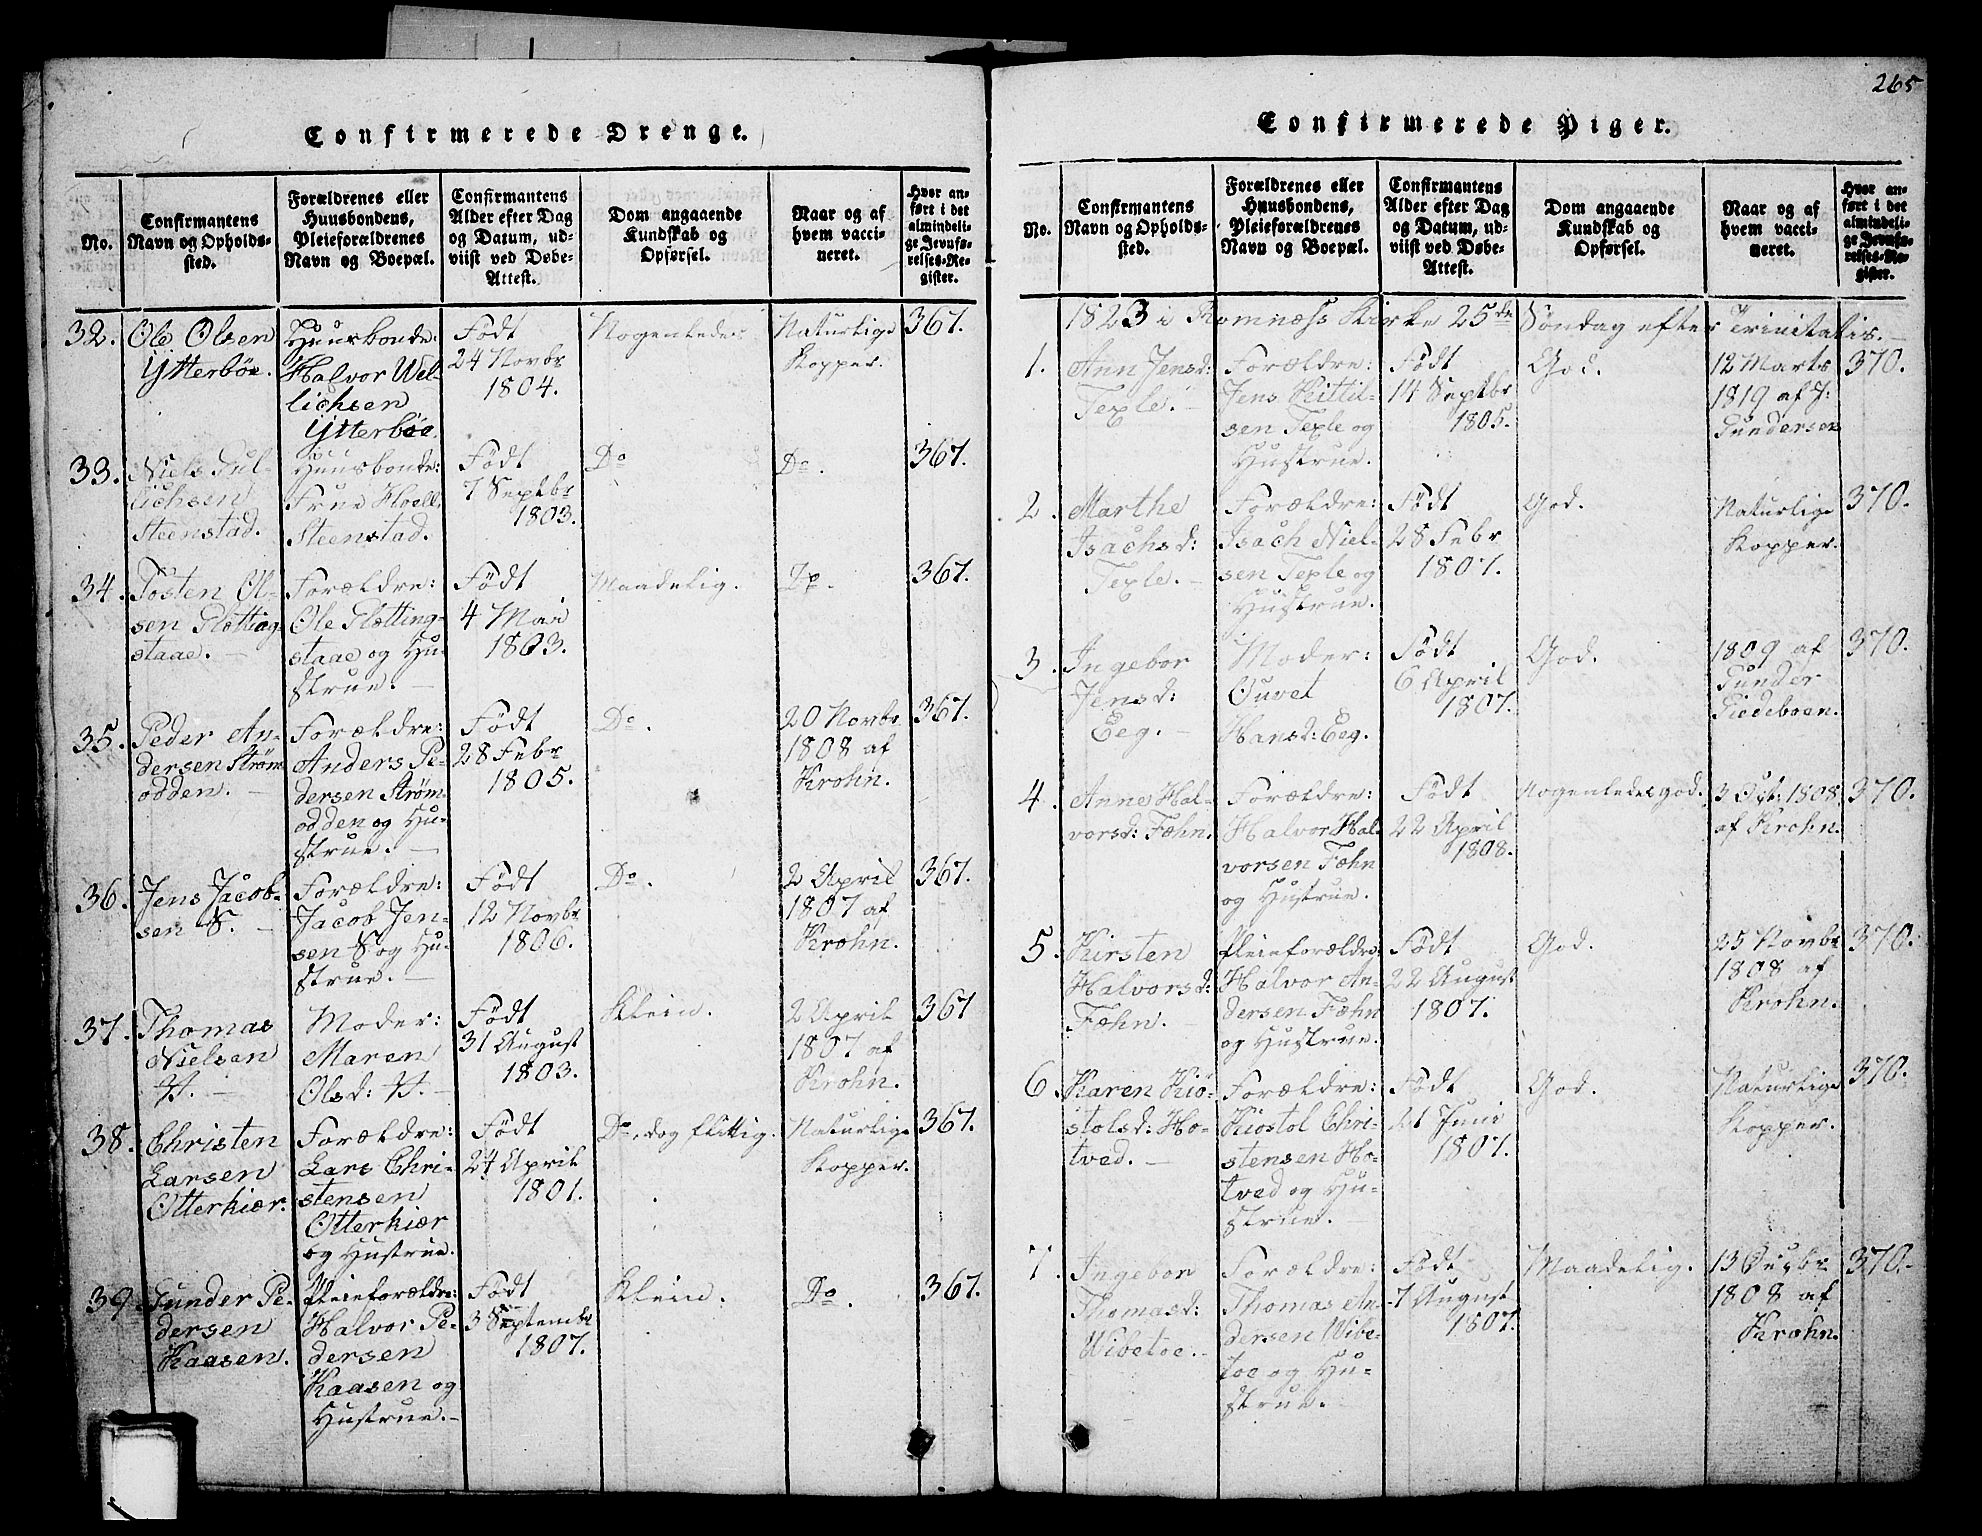 Confirmerede Drenge.
No.
Confirmantens
Navn og Opholds-
sted.
Forældrenes eller
Huusbondens,
Pleieforældrenes
Navn og Boepæl.
Confirmantens
Alder efter Dag
og Datum, ud-
viist ved Døbe-
Attest.
Dom angaaende
Kundskab og
Opførsel.
Naar og af
hvem vacci-
neret.
Hvor an-
ført i det
almindeli-
ge Jevnfø-
relses-Re-
gister.
32.
Ole Olsen
Ytterbøe.
Huusbonde:
Halvor Wel-
lichsen
Ytterbøe
Født
24 Novbr
1804.
Nogenledes
Naturlige
Kopper.
367.
33.
Niels Tul-
lichsen
Steenstad.
Huusbonde:
Frue Hoell
Steenstad.
Født
7 Septbr
1803.
Do
Do.
367.
34.
Tosten Ol-
sen Slætting-
staae. -
Forældre:
Ole Slætting-
staae og Hu-
strue. -
Født
4 Mai
1803.
Maadelig.
Do.
367.
35.
Peder An-
dersen Strøm-
odden. -
Forældre:
Anders Pe-
dersen Strøm-
odden og Hu-
strue. -
Født
28 Febr
1805.
Do.
20 Novbr
1808 af
Krohn.
367.
36.
Jens Jacob-
sen S. -
Forældre:
Jacob Jen-
sen S og Hu-
strue. -
Født
12 Novbr
1806.
Do.
2 April
1807 af
Krohn.
367.
37.
Thomas
Nielsen
V. -
Moder:
Maren
Olsd: V. -
Født
31 August
1803.
Klein.
2 April
1807 af
Krohn.
367
38.
Christen
Larsen
Otterkiær.
Forældre:
Lars Chri-
stensen
Otterkiær
og Hustrue.
Født
24 April
1801.
Do, dog flittig.
Naturlige
Kopper.
367.
39.
Gunder Pe-
dersen
Kaasen.
Pleieforældre:
Halvor Pe-
dersen
Kaasen og
Hustrue. -
Født
3 Septembr
1807.
Klein.
Do.
367.
265
Confirmerede Piger.
No.
Confirmantens
Navn og Opholds-
sted.
Forældrenes eller
Huusbondens,
Pleieforældrenes
Navn og Boepæl.
Confirmantens
Alder efter Dag
og Datum, ud-
viist ved Døbe-
Attest.
Dom angaaende
Kundskab og
Opførsel.
Naar og af
hvem vacci-
neret.
Hvor an-
ført i det
almindeli-
ge Jevnfø-
relses-Re-
gister.
1823 i Romnæss Kirke 25de Søndag efter Trinitatis. -
1.
Ann Jensd:
Texle. -
Forældre:
Jens Kittil-
sen Texle og
Hustrue.
Født
14 Septbr
1805.
God.
12 Marts
1819 af J:
Gundersen
370.
2.
Marthe
Isachsd:
Texle. -
Forældre:
Isach Niel-
sen Texle og
Hustrue.
Født
28 Febr
1807.
God.
Naturlige
Kopper.
370.
3.
Ingebor
Jensd:
Eeg. -
Moder:
Ouvet
Hansd: Eeg.
Født
6 April
1807.
God.
1809 af
Gunder
Tiedeboen.
370.
4.
Anne Hal-
vorsd: Fæhn.
Forældre:
Halvor Hal-
vorsen Fæhn
og Hustrue.
Født
22 April
1808.
Nogenledes god.
3 1808
af Krohn.
370.
5.
Kirsten
Halvorsd:
Fæhn. -
Pleieforældre:
Halvor An-
dersen Fæhn
og Hustrue.
Født
22 August
1807.
God.
25 Novbr
1808 af
Krohn.
370.
6.
Karen Kio-
stolsd: Ho-
tved. -
Forældre:
Kiostol Chri-
stensen Ho-
tved og Hu-
strue. -
Født
21 Juni
1807.
God.
Naturlige
Kopper.
370.
7.
Ingebor
Thomasd:
Wibetoe. -
Forældre:
Thomas An-
dersen Wibe-
toe og Hu-
strue. -
Født
7 August
1807.
Maadelig.
13
1808 af
Krohn.
370.